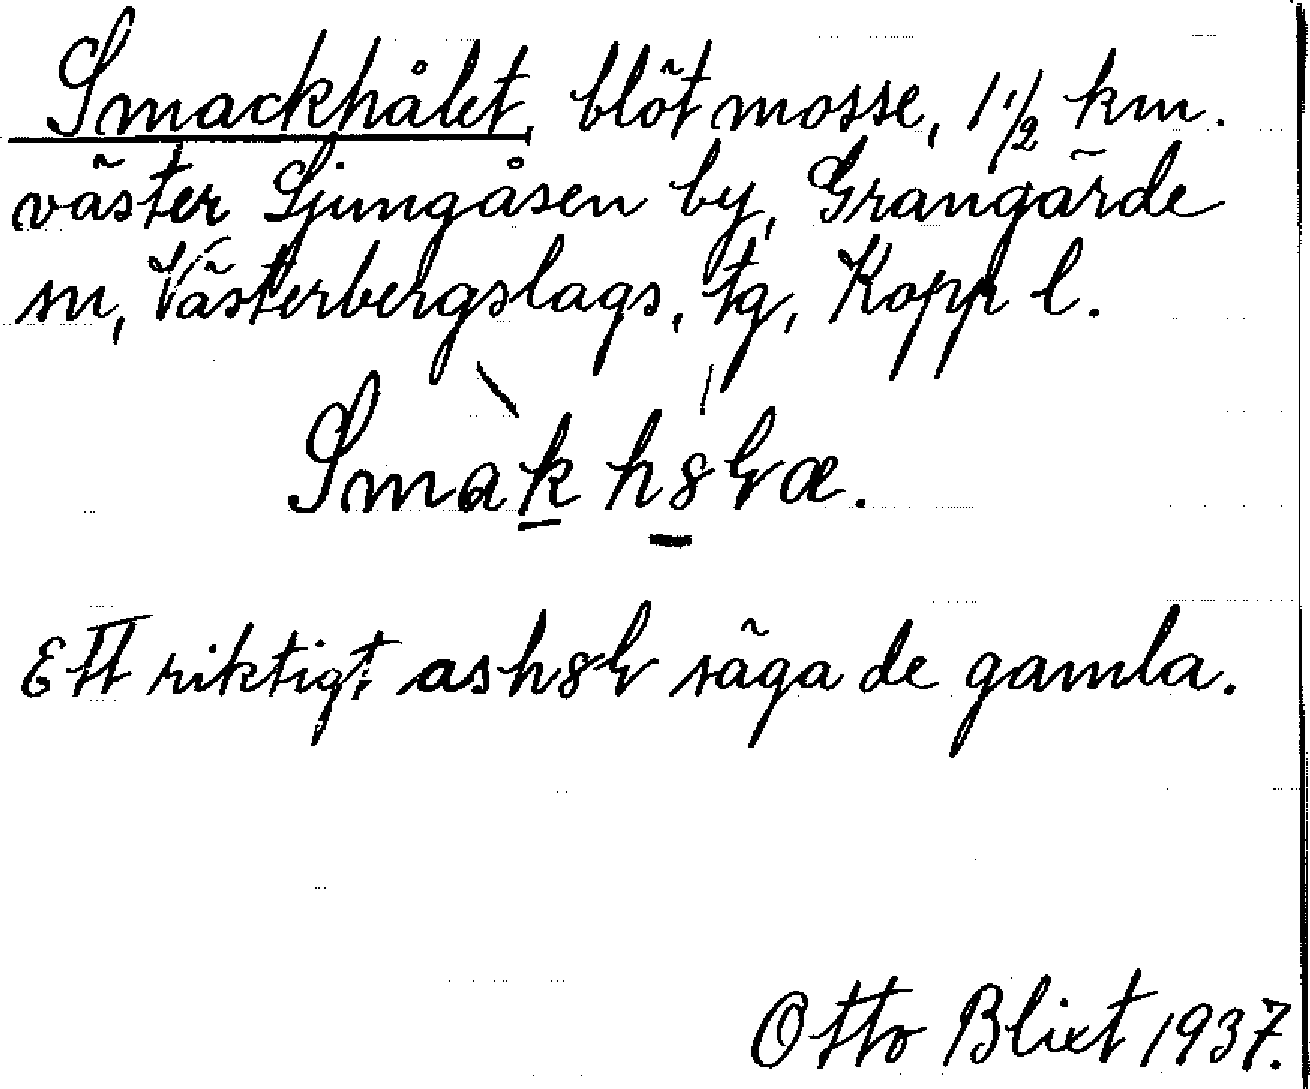 Smackhålet, blöt mosse, 1 1/2 km.
väster Ljungåsen by, Grangärde
sn, Västerbergslags, tg, Kopp l.
Smak h8ɬæ.
Ett riktigt ash8ɬ säga de gamla.
Otto Blixt 1937.